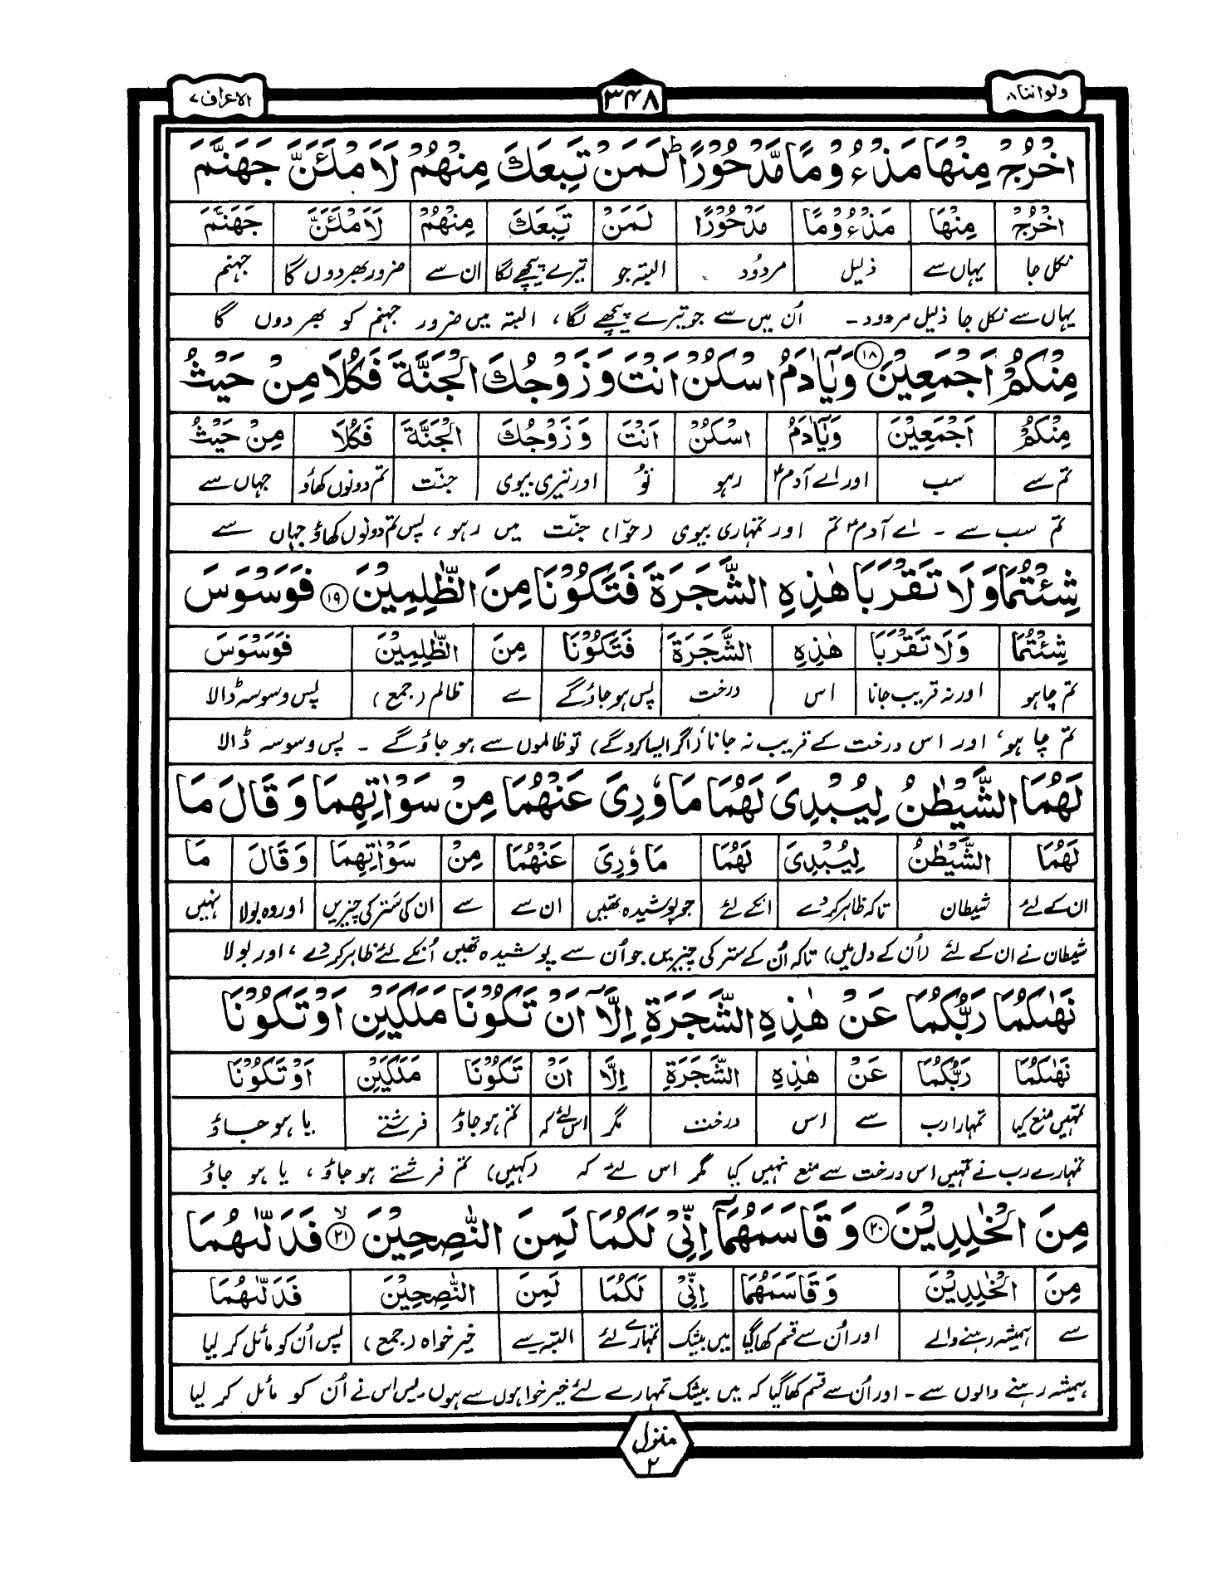 ولواننا ۸
۳۴۸
الاعراف ۷
اخْرُجْ مِنْهَا مَذْءُوْمًا مَّدْحُوْرًا ؕ لَمَنْ تَبِعَكَ مِنْهُمْ لَاَمْلَئَنَّ جَهَنَّمَ
اخْرُجْ مِنْهَا مَذْءُوْمًا مَدْحُوْرًا لَمَنْ تَبِعَكَ مِنْهُمْ لَاَمْلَئَنَّ جَهَنَّمَ
نکل جا یہاں سے ذلیل مردود البتہ جو تیرے پیچھے لگا ان سے ضرور بھر دوں گا جہنم
یہاں سے نکل جا ذلیل مردود ۔ اُن میں سے جو تیرے پیچھے لگا، البتہ میں ضرور جہنم کو بھر دوں گا
مِنْكُمْ اَجْمَعِيْنَ ۱۸ وَيٰۤاٰدَمُ اسْكُنْ اَنْتَ وَ زَوْجُكَ الْجَنَّةَ فَكُلَا مِنْ حَيْثُ
مِنْكُمْ اَجْمَعِيْنَ وَيٰۤاٰدَمُ اسْكُنْ اَنْتَ وَ زَوْجُكَ الْجَنَّةَ فَكُلَا مِنْ حَيْثُ
تم سے سب اور اے آدمؑ رہو تُو اور تیری بیوی جنّت تم دونوں کھاؤ جہاں سے
تم سب سے ۔ اے آدمؑ تم اور تمہاری بیوی (حوّا) جنّت میں رہو، پس تم دونوں کھاؤ جہاں سے
شِئْتُمَا وَلَا تَقْرَبَا هٰذِهِ الشَّجَرَةَ فَتَكُوْنَا مِنَ الظّٰلِمِيْنَ ۱۹ فَوَسْوَسَ
شِئْتُمَا وَلَا تَقْرَبَا هٰذِهِ الشَّجَرَةَ فَتَكُوْنَا مِنَ الظّٰلِمِيْنَ فَوَسْوَسَ
تم چاہو اور نہ قریب جانا اس درخت پس ہو جاؤ گے سے ظالم (جمع) پس وسوسہ ڈالا
تم چاہو، اور اس درخت کے قریب نہ جانا (اگر ایسا کرو گے) تو ظالموں سے ہو جاؤ گے ۔ پس وسوسہ ڈالا
لَهُمَا الشَّيْطٰنُ لِيُبْدِيَ لَهُمَا مَا وٗرِيَ عَنْهُمَا مِنْ سَوْاٰتِهِمَا وَ قَالَ مَا
لَهُمَا الشَّيْطٰنُ لِيُبْدِيَ لَهُمَا مَا وٗرِيَ عَنْهُمَا مِنْ سَوْاٰتِهِمَا وَقَالَ مَا
ان کے لئے شیطان تاکہ ظاہر کر دے انکے لئے جو پوشیدہ تھیں ان سے سے ان کی ستر کی چیزیں اور وہ بولا نہیں
شیطان نے ان کے لئے (اُن کے دل میں) تاکہ اُن کے ستر کی چیزیں جو اُن سے پوشیدہ تھیں اُنکے لئے ظاہر کر دے، اور بولا
نَهٰىكُمَا رَبُّكُمَا عَنْ هٰذِهِ الشَّجَرَةِ اِلَّاۤ اَنْ تَكُوْنَا مَلَكَيْنِ اَوْ تَكُوْنَا
نَهٰىكُمَا رَبُّكُمَا عَنْ هٰذِهِ الشَّجَرَةِ اِلَّا اَنْ تَكُوْنَا مَلَكَيْنِ اَوْ تَكُوْنَا
تمہیں منع کیا تمہارا رب سے اس درخت مگر اس لئے کہ تم ہو جاؤ فرشتے یا ہو جاؤ
تمہارے رب نے تمہیں اس درخت سے منع نہیں کیا مگر اس لئے کہ (کہیں) تم فرشتے ہو جاؤ، یا ہو جاؤ
مِنَ الْخٰلِدِيْنَ ۲۰ وَ قَاسَمَهُمَاۤ اِنِّيْ لَكُمَا لَمِنَ النّٰصِحِيْنَ ۙ۲۱ فَدَلّٰىهُمَا
مِنَ الْخٰلِدِيْنَ وَ قَاسَمَهُمَا اِنِّيْ لَكُمَا لَمِنَ النّٰصِحِيْنَ فَدَلّٰىهُمَا
سے ہمیشہ رہنے والے اور اُن سے قسم کھا گیا میں بیشک تمہارے لئے البتہ سے خیر خواہ (جمع) پس اُن کو مائل کر لیا
ہمیشہ رہنے والوں سے ۔ اور اُن سے قسم کھا گیا کہ میں بیشک تمہارے لئے خیر خواہوں سے ہوں۔ پس اس نے اُن کو مائل کر لیا
منزل ۲